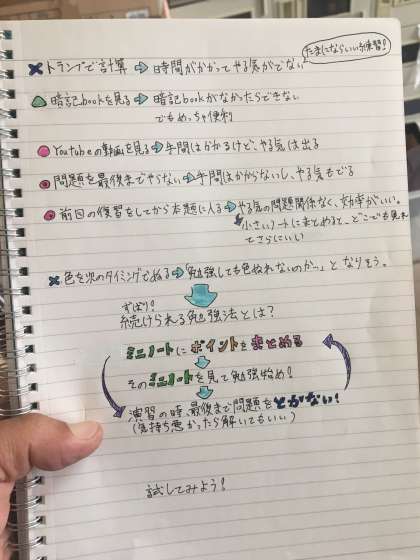 たまにならいい練習!
✖ トランプで計算 ⇨ 時間がかかってやる気がでない
▲ 暗記bookを見る ⇨ 暗記bookがなかったらできない
でもめっちゃ便利
● Youtubeの動画を見る ⇨ 手間はかかるけど、やる気は出る
◉ 問題を最後までやらない ⇨ 手間はかからないし、やる気もでる
◉ 前回の復習をしてから本題に入る ⇨ やる気の問題関係なく、効率がいい。
小さいノートにまとめると、どこでも見れ
てさらにいい
✖ 色を次のタイミングでぬる ⇨「勉強しても色ぬれないのか…」となりそう。
ずばり!
続けられる勉強法とは?
ミニノートにポイントをまとめる
そのミニノートを見て勉強始め!
演習の時、最後まで問題をとかない!
(気持ち悪かったら解いてもいい)
試してみよう!